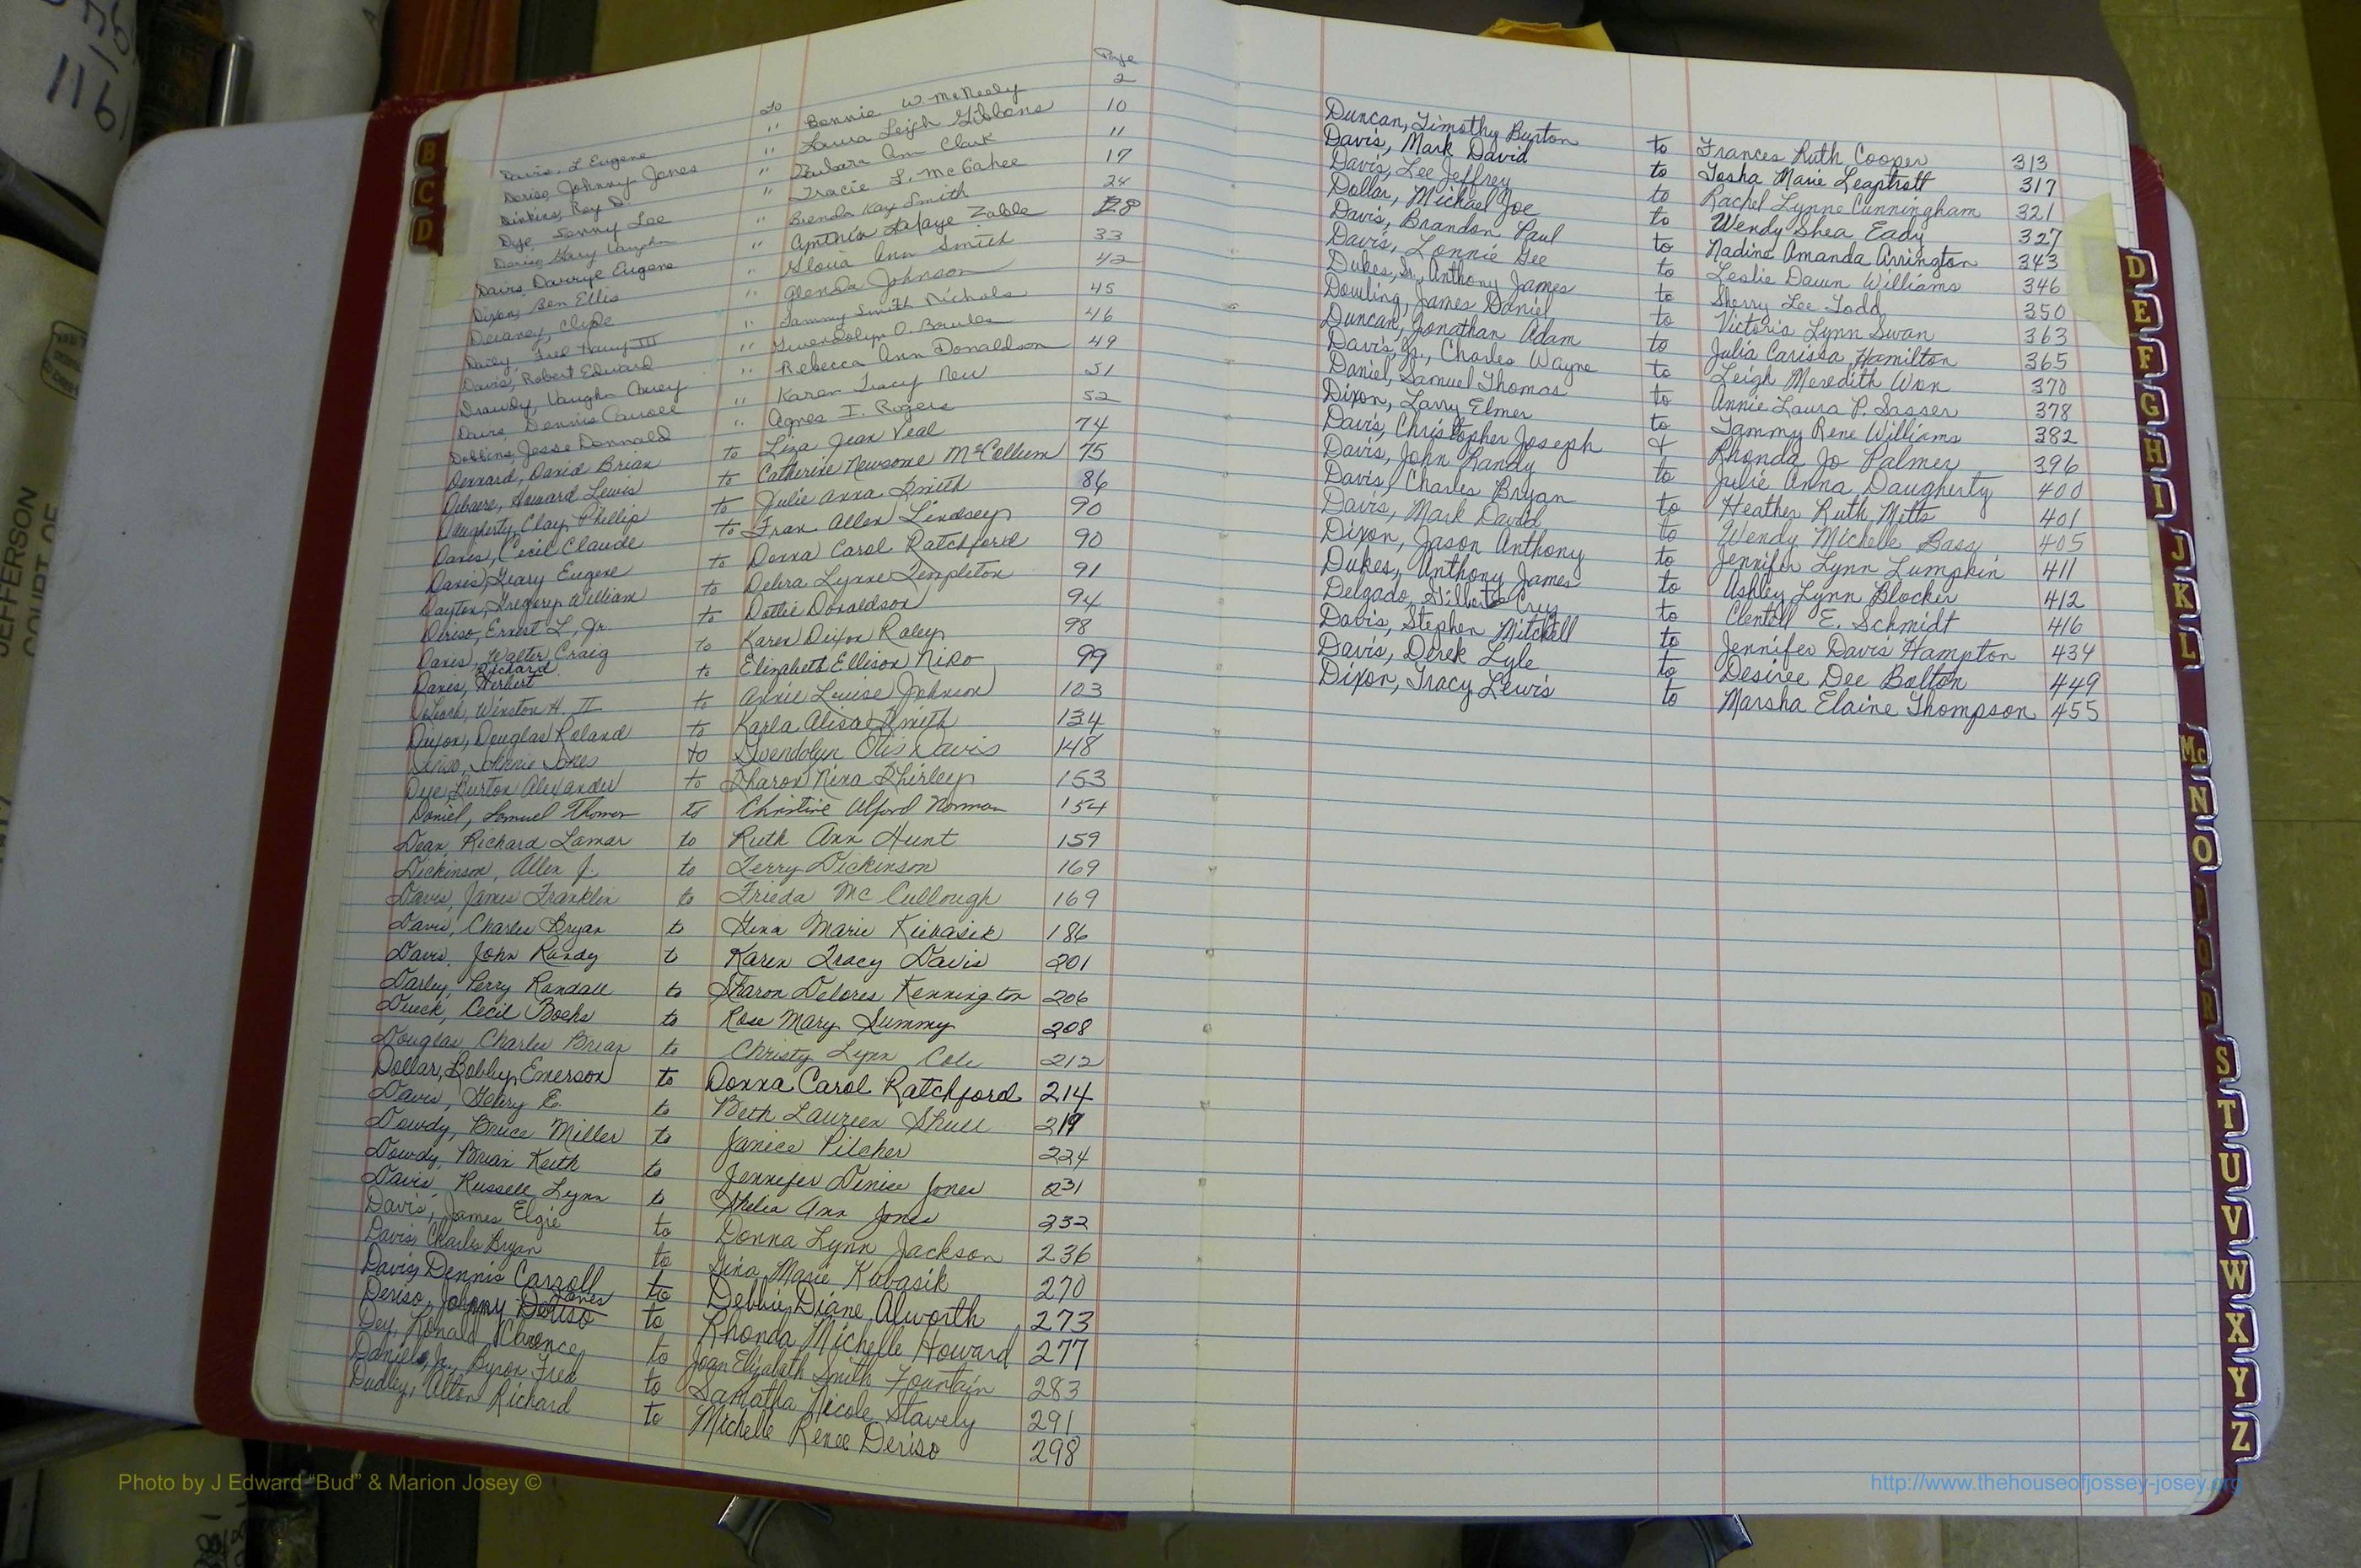 1161
JEFFERSON
COURT OF
B
C
D
Page
to
Davis, L Eugene " Bonnie W. McNeely 2
Deriso, Johnny Jones " Laura Leigh Gibbons 10
Dinkins, Roy D. " Barbara Ann Clark 11
Dye, Sonny Lee " Tracie L. McGahee 17
Deriso, Gary Vaughn " Brenda Kay Smith 24
Davis, Darryl Eugene " Cynthia Zable 28
Dixon, Ben Ellis " Gloria Ann Smith 33
Delaney, Clyde " Glenda Johnson 42
Daily, Fred Harry III " Tammy Smith Nichols 45
Davis, Robert Edward " Gwendolyn O. 46
Drawdy, Vaughn " Rebecca Ann Donaldson 49
Davis, Dennis Carroll " Karen Tracy New 51
Dobbins, Jesse Donnald " Agnes I. Rogers 52
Dennard, David Brian to Liza Jean Veal 74
Howard Lewis to Catherine Newsome McCollum 75
Daugherty, Clay Phillip to Julie Anna Smith 86
Davis, Cecil Claude to Fran Allen Lindsey 90
Davis, Geary Eugene to Donna Carol Ratchford 90
Dayton, Gregory William to Debra Lynne Templeton 91
Deriso, Ernest L., Jr. to Dottie Donaldson 94
Davis, Walter Craig to Karen Dixon Raley 98
Richard
Davis, Herbert to Elizabeth Ellison 99
DeLoach, Winston H. II to Annie Louise Johnson 103
Dixon, Douglas Roland to Karla Alisa Smith 134
Deriso, Johnnie Jones to Gwendolyn Otis Davis 148
Dye, Burton Alexander to Sharon Nina Shirley 153
Daniel, Samuel Thomas to Christine Alford Norman 154
Dean, Richard Lamar to Ruth Ann Hunt 159
Dickinson, Allen J. to Terry Dickinson 169
Davis, James Franklin to Frieda McCullough 169
Davis, Charles Bryan to Gina Marie Kubasik 186
Davis, John Randy to Karen Tracy Davis 201
Darley, Perry Randall to Sharon Delores Kennington 206
Dueck, Cecil Boehs to Rose Mary Summy 208
Douglas, Charles Brian to Christy Lynn Cole 212
Dollar, Bobby Emerson to Donna Carol Ratchford 214
Davis, E. to Beth Laureen Shull 219
Dowdy, Bruce Miller to Janice Pilcher 224
Dowdy, Brian Keith to Jennifer Denise Jones 231
Davis, Russell Lynn to Shelia Ann Jones 232
Davis, James Elgie to Donna Lynn Jackson 236
Davis, Charles Bryan to Gina Marie Kubasik 270
Davis, Dennis Carroll to Debbie Diane Alworth 273
Jones
Deriso, Johnny Deriso to Rhonda Michelle Howard 277
Dey, Ronald Clarence to Joan Elizabeth Smith Fountain 283
Daniels, Jr., Byron Fred to Samatha Nicole Stavely 291
Dudley, Alton Richard to Michelle Renee Deriso 298
Duncan, Timothy Burton to Frances Ruth Cooper 313
Davis, Mark David to Tosha Marie Leaptrott 317
Davis, Lee Jeffrey to Rachel Lynne Cunningham 321
Dollar, Michael Joe to Wendy Shea Eady 327
Davis, Brandon Paul to Nadine Amanda Arrington 343
Davis, Lonnie Gee to Leslie Dawn Williams 346
Dukes, Sr., Anthony James to Sherry Lee Todd 350
Dowling, James Daniel to Victoria Lynn Swan 363
Duncan, Jonathan Adam to Julia Carissa Hamilton 365
Davis, Jr., Charles Wayne to Leigh Meredith 370
Daniel, Samuel Thomas to Annie Laura P. Sasser 378
Dixon, Larry Elmer to Tammy Rene Williams 382
Davis, Christopher Joseph & Rhonda Jo Palmer 396
Davis, John Randy to Julie Anna Daugherty 400
Davis, Charles Bryan to Heather Ruth Mitts 401
Davis, Mark David to Wendy Michele Bass 405
Dixon, Jason Anthony to Jennifer Lynn Lumpkin 411
Dukes, Anthony James to Ashley Lynn Blocker 412
Delgado, Gilberto Cruz to E. Schmidt 416
Davis, Stephen Mitchell to Jennifer Davis Hampton 434
Davis, Derek Lyle to Desiree Dee Bolton 449
Dixon, Tracy Lewis to Marsha Elaine Thompson 455
D
E
F
G
H
I
J
K
L
Mc
N
O
P
Q
R
S
T
U
V
W
X
Y
Z
Photo by J Edward “Bud” & Marion Josey ©
http://www.thehouseofjossey-josey.org